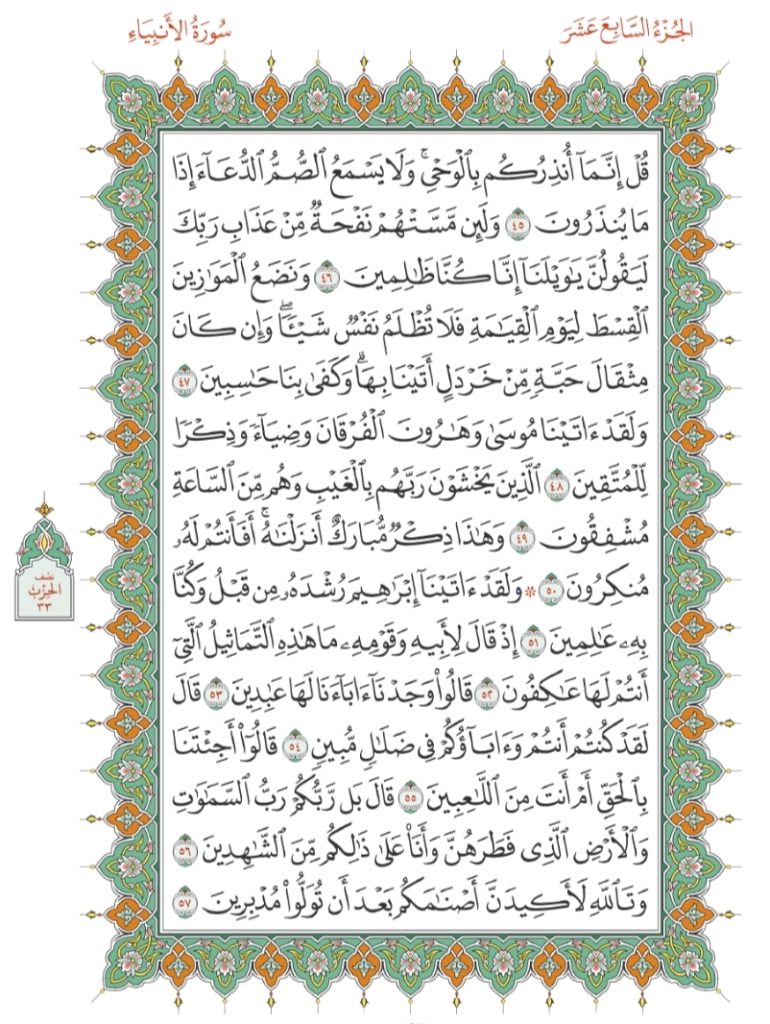 الجُزْءُ السَّابِعَ عَشَرَ
سُورَةُ الأَنبِيَاءِ
قُلْ إِنَّمَآ أُنذِرُكُم بِٱلْوَحْيِۚ وَلَا يَسْمَعُ ٱلصُّمُّ ٱلدُّعَآءَ إِذَا
مَا يُنذَرُونَ ٤٥ وَلَئِن مَّسَّتْهُمْ نَفْحَةٌ مِّنْ عَذَابِ رَبِّكَ
لَيَقُولُنَّ يَٰوَيْلَنَآ إِنَّا كُنَّا ظَٰلِمِينَ ٤٦ وَنَضَعُ ٱلْمَوَٰزِينَ
ٱلْقِسْطَ لِيَوْمِ ٱلْقِيَٰمَةِ فَلَا تُظْلَمُ نَفْسٌ شَيْـًٔاۖ وَإِن كَانَ
مِثْقَالَ حَبَّةٍ مِّنْ خَرْدَلٍ أَتَيْنَا بِهَاۗ وَكَفَىٰ بِنَا حَٰسِبِينَ ٤٧
وَلَقَدْ ءَاتَيْنَا مُوسَىٰ وَهَٰرُونَ ٱلْفُرْقَانَ وَضِيَآءً وَذِكْرًا
لِّلْمُتَّقِينَ ٤٨ ٱلَّذِينَ يَخْشَوْنَ رَبَّهُم بِٱلْغَيْبِ وَهُم مِّنَ ٱلسَّاعَةِ
مُشْفِقُونَ ٤٩ وَهَٰذَا ذِكْرٌ مُّبَارَكٌ أَنزَلْنَٰهُۚ أَفَأَنتُمْ لَهُۥ
مُنكِرُونَ ٥٠ ۞ وَلَقَدْ ءَاتَيْنَآ إِبْرَٰهِيمَ رُشْدَهُۥ مِن قَبْلُ وَكُنَّا
بِهِۦ عَٰلِمِينَ ٥١ إِذْ قَالَ لِأَبِيهِ وَقَوْمِهِۦ مَا هَٰذِهِ ٱلتَّمَاثِيلُ ٱلَّتِيٓ
أَنتُمْ لَهَا عَٰكِفُونَ ٥٢ قَالُوا۟ وَجَدْنَآ ءَابَآءَنَا لَهَا عَٰبِدِينَ ٥٣ قَالَ
لَقَدْ كُنتُمْ أَنتُمْ وَءَابَآؤُكُمْ فِي ضَلَٰلٍ مُّبِينٍ ٥٤ قَالُوٓا۟ أَجِئْتَنَا
بِٱلْحَقِّ أَمْ أَنتَ مِنَ ٱللَّٰعِبِينَ ٥٥ قَالَ بَل رَّبُّكُمْ رَبُّ ٱلسَّمَٰوَٰتِ
وَٱلْأَرْضِ ٱلَّذِي فَطَرَهُنَّ وَأَنَا۠ عَلَىٰ ذَٰلِكُم مِّنَ ٱلشَّٰهِدِينَ ٥٦
وَتَٱللَّهِ لَأَكِيدَنَّ أَصْنَٰمَكُم بَعْدَ أَن تُوَلُّوا۟ مُدْبِرِينَ ٥٧
نصف
الحزب
٣٣